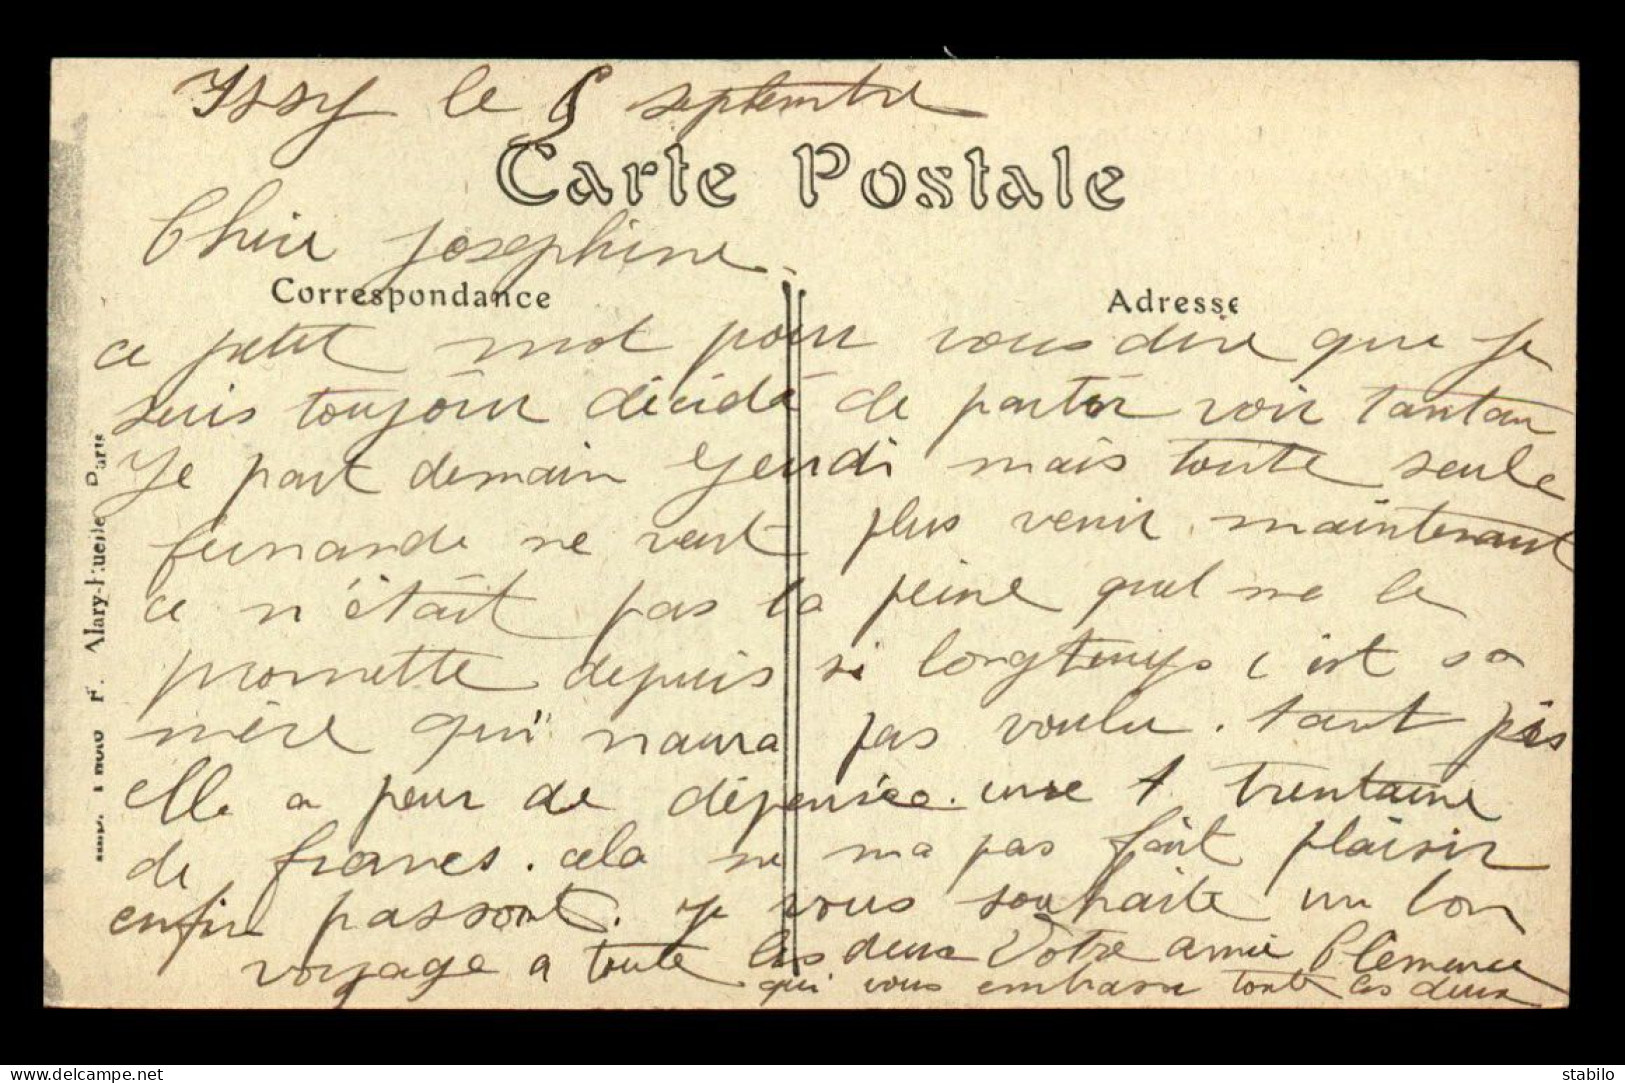 Issy le septembre
Carte Postale
Chère Josephine.
Correspondance
Adresse
ce petit mot pour vous dire que je
suis toujour décidé de partir voir tantan
Je part demain Jeudi mais toute seule
fernande ne veut plus venir maintenant
ce n'était pas la peine quel me le
promette depuis si longtemps c'est sa
mère qui naura pas voulu. tant pis
elle a peur de dépensée. une trentaine
de francs. cela ne ma pas fait plaisir
enfin passont. je vous souhaite un bon
voyage a toute les deux Votre amie Clémence
qui vous embrasse toute les deux
Alary-Ruelle Paris